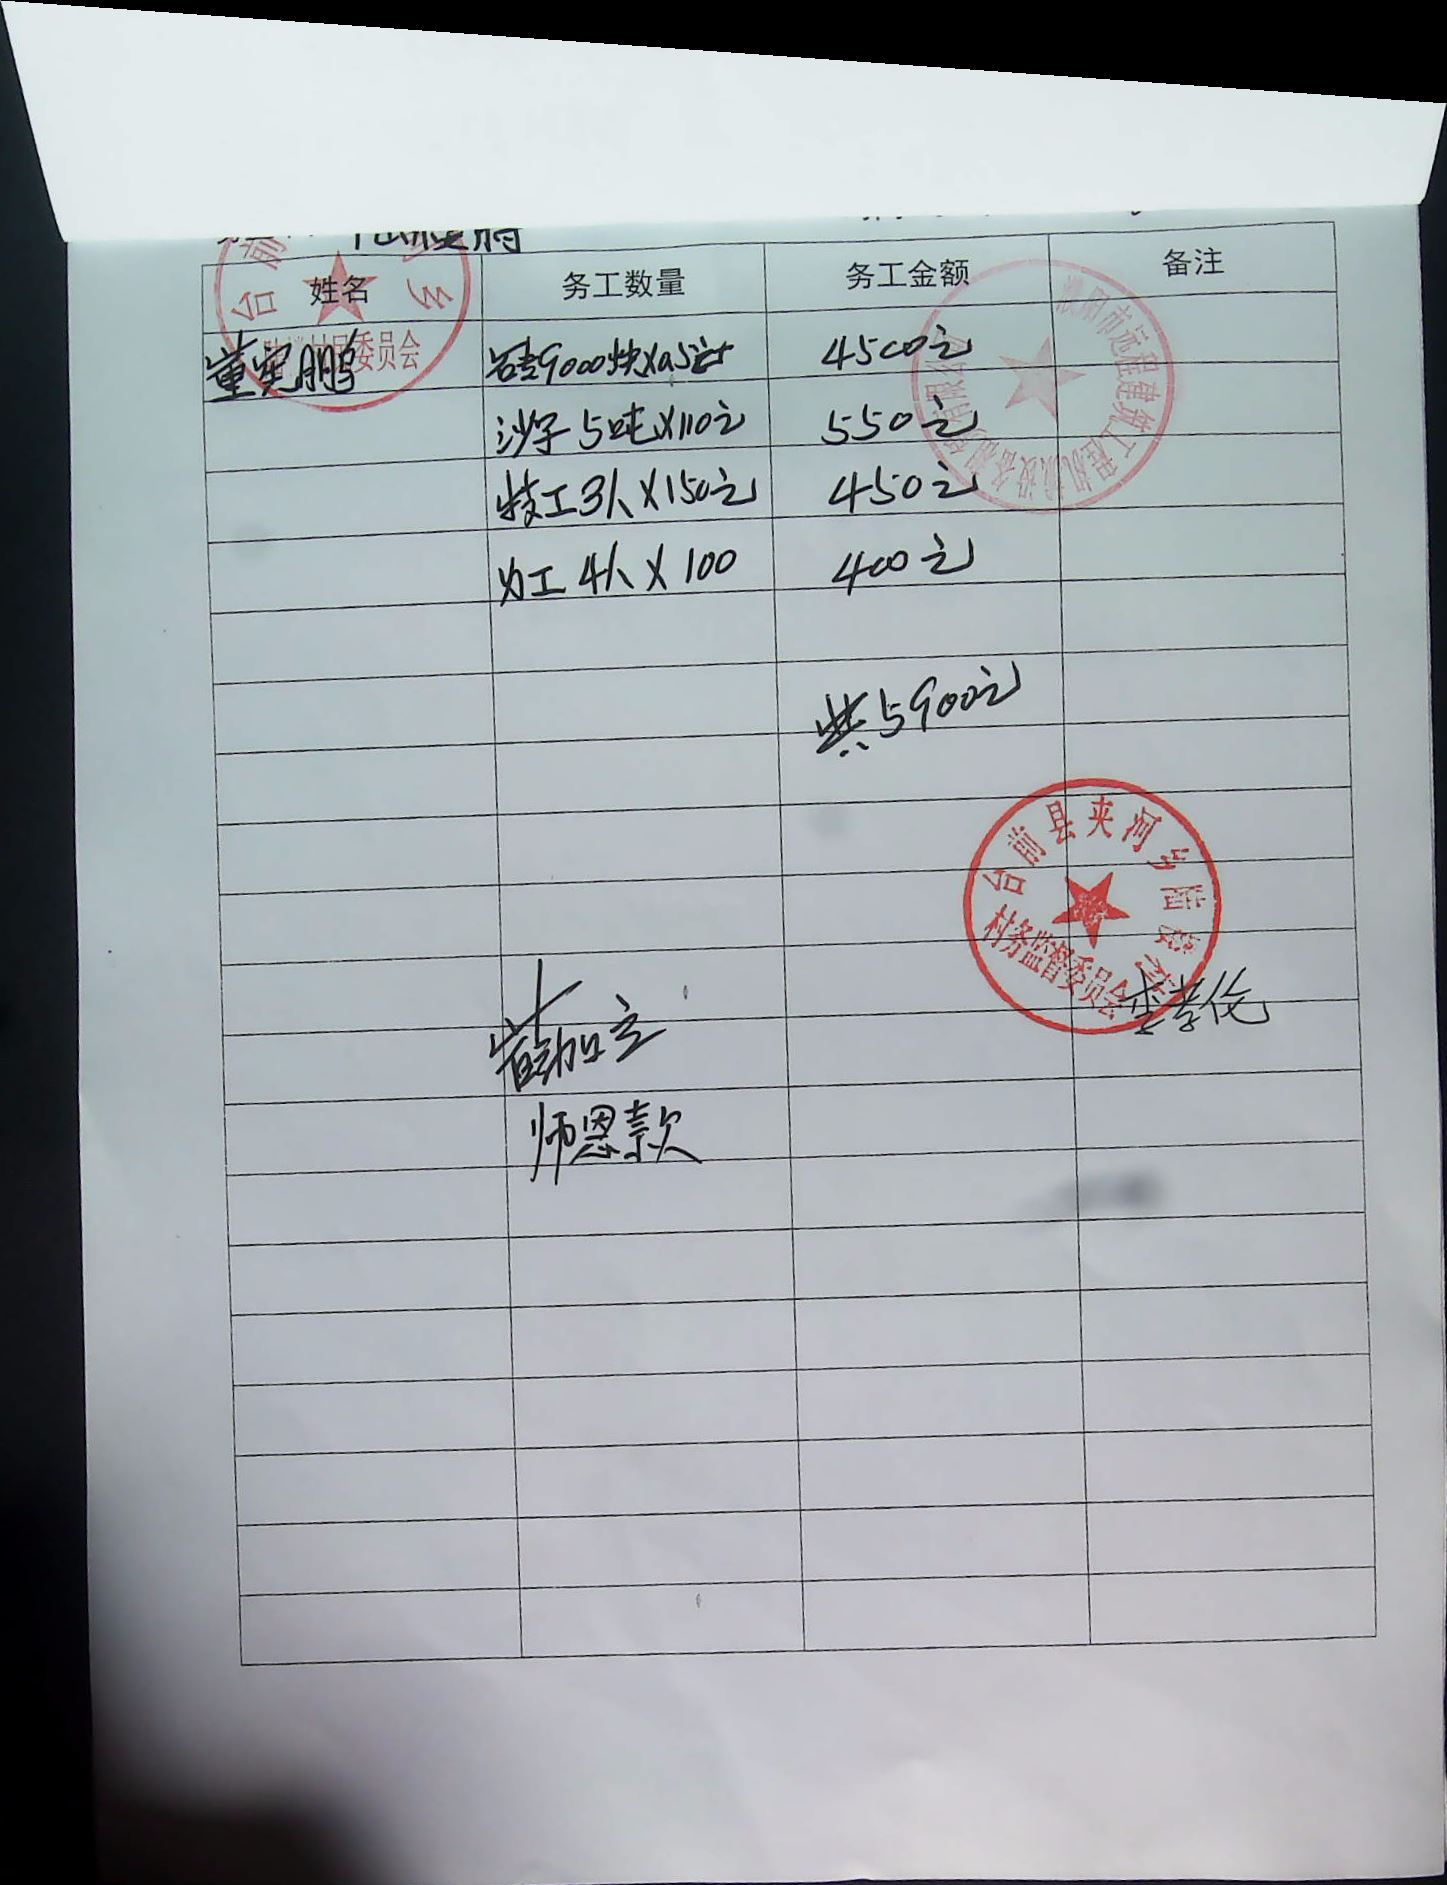 姓名 务工数量 务工金额 备注
董宪鹏 砖9000块X0.5元 4500元
沙子5吨X110元 550元
技工3人X150元 450元
力工4人X100 400元
共5900元
台前县夹河乡
村务监督委员会
李孝伦
师恩款
村民委员会
濮阳市远程建筑工程机械设备租赁有限公司